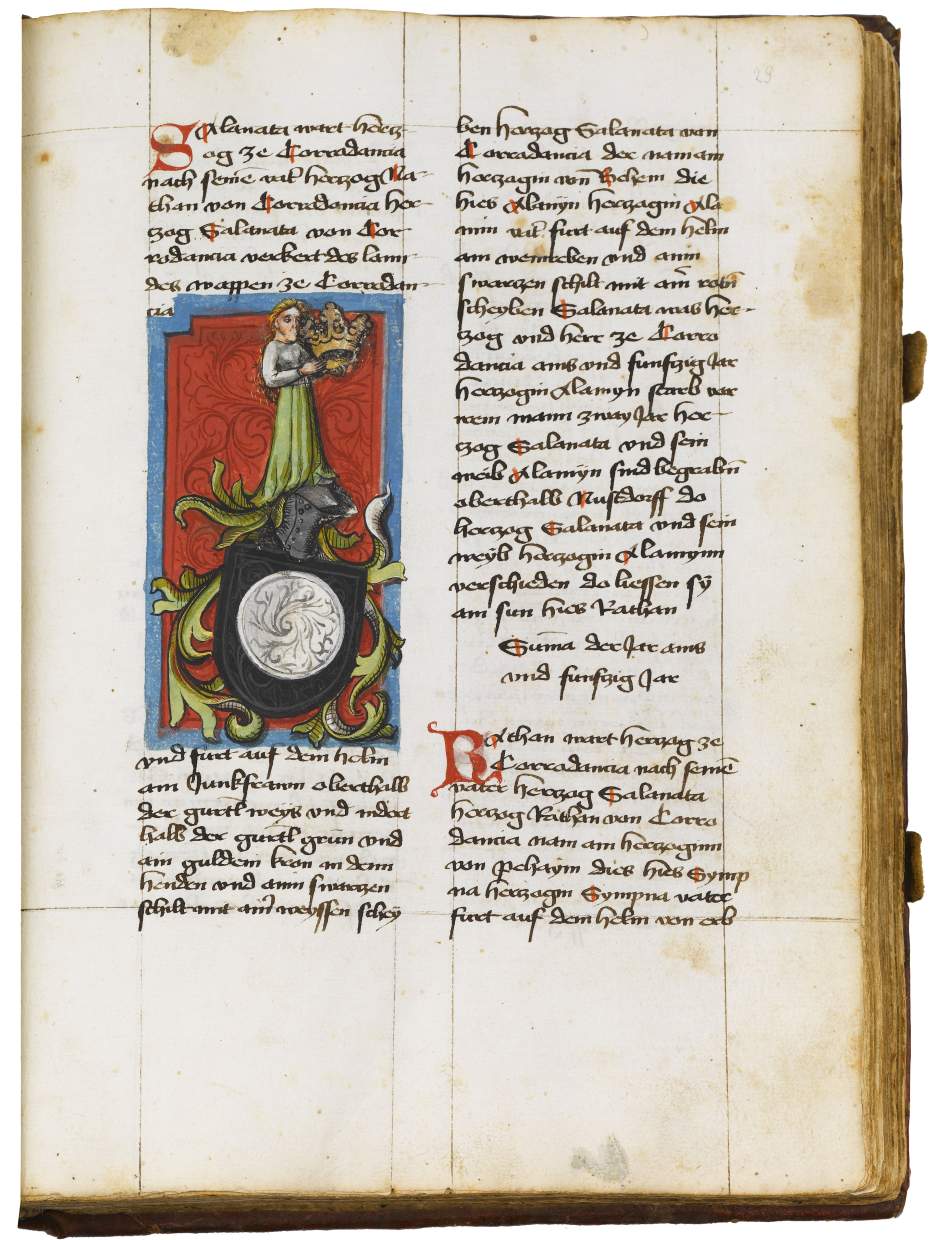 29
Salanata wart hertz-
og ze Corrodancia
nach seine vat' hertzog Na-
than von Corrodancia her-
zog Salanata von Cor-
rodancia verkert des lann-
des wappen ze Corrodan-
cia
vnd fürt auf dem helm
ain Junkfrawn oberthalb
der gürtl weys vnd indert
halb der gürtl grün vnd
ain guldein kron in denn
henden vnd ainn swarczen
schilt mit aim weyssen schey
ben herzog Salanata von
Corrodancia der nam ain
hertzogin von Behem die
hies Alamyn hertzogin Ala
min vat' fürt auf dem helm
ain weinreben vnd ainn
swarzen schilt mit aim rotn
scheyben Salanata was her-
zog vnd herr ze Corro
dancia ains vnd funfzig Jar
hertzogin Alamyn starb vor
irem mann zway Jar her-
tzog Salanata vnd sein
weib Alamyn sind begrabn
oberthalb Nustdorff do
hertzog Salanata vnd sein
weyb hertzogin Alamynn
verschieden do liessen sy
ain sun hies Rathan
Suma der Jar ains
vnd funfzig Jar
Rathan wart hertzog ze
Corrodancia nach seinem
vater hertzog Salanata
hertzog Rathan von Corro
dancia nam ain hertzoginn
von Pehaym dies hies Symp
na hertzogin Sympna vater
fürt auf dem helm von erb